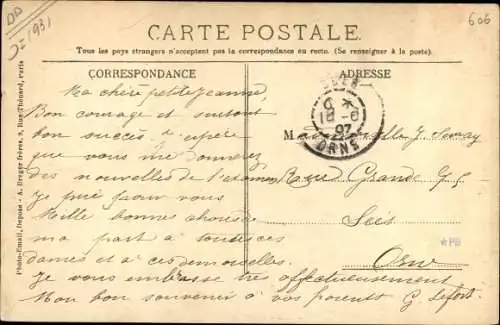 DD
J=1931
606
CARTE POSTALE.
Tous les pays étrangers n'acceptent pas la correspondance au recto. (Se renseigner à la poste).
CORRESPONDANCE
ADRESSE
Photo-Email, Déposé - A. Breger frères, 9, Rue Thénard, Paris
Ma chère petite Jeanne,
Bon courage et surtout
bon succès. J'espère
que vous me donnerez
des nouvelles de l'examen
Je prie pour vous
Mille bonnes choses de
ma part à toutes ces
dames et à ces demoiselles.
Je vous embrasse très affectueusement
Mon bon souvenir à vos parents G. Lefort
ORNE
Mademoiselle J.
Rue Grande
Sées
Orne
★PB